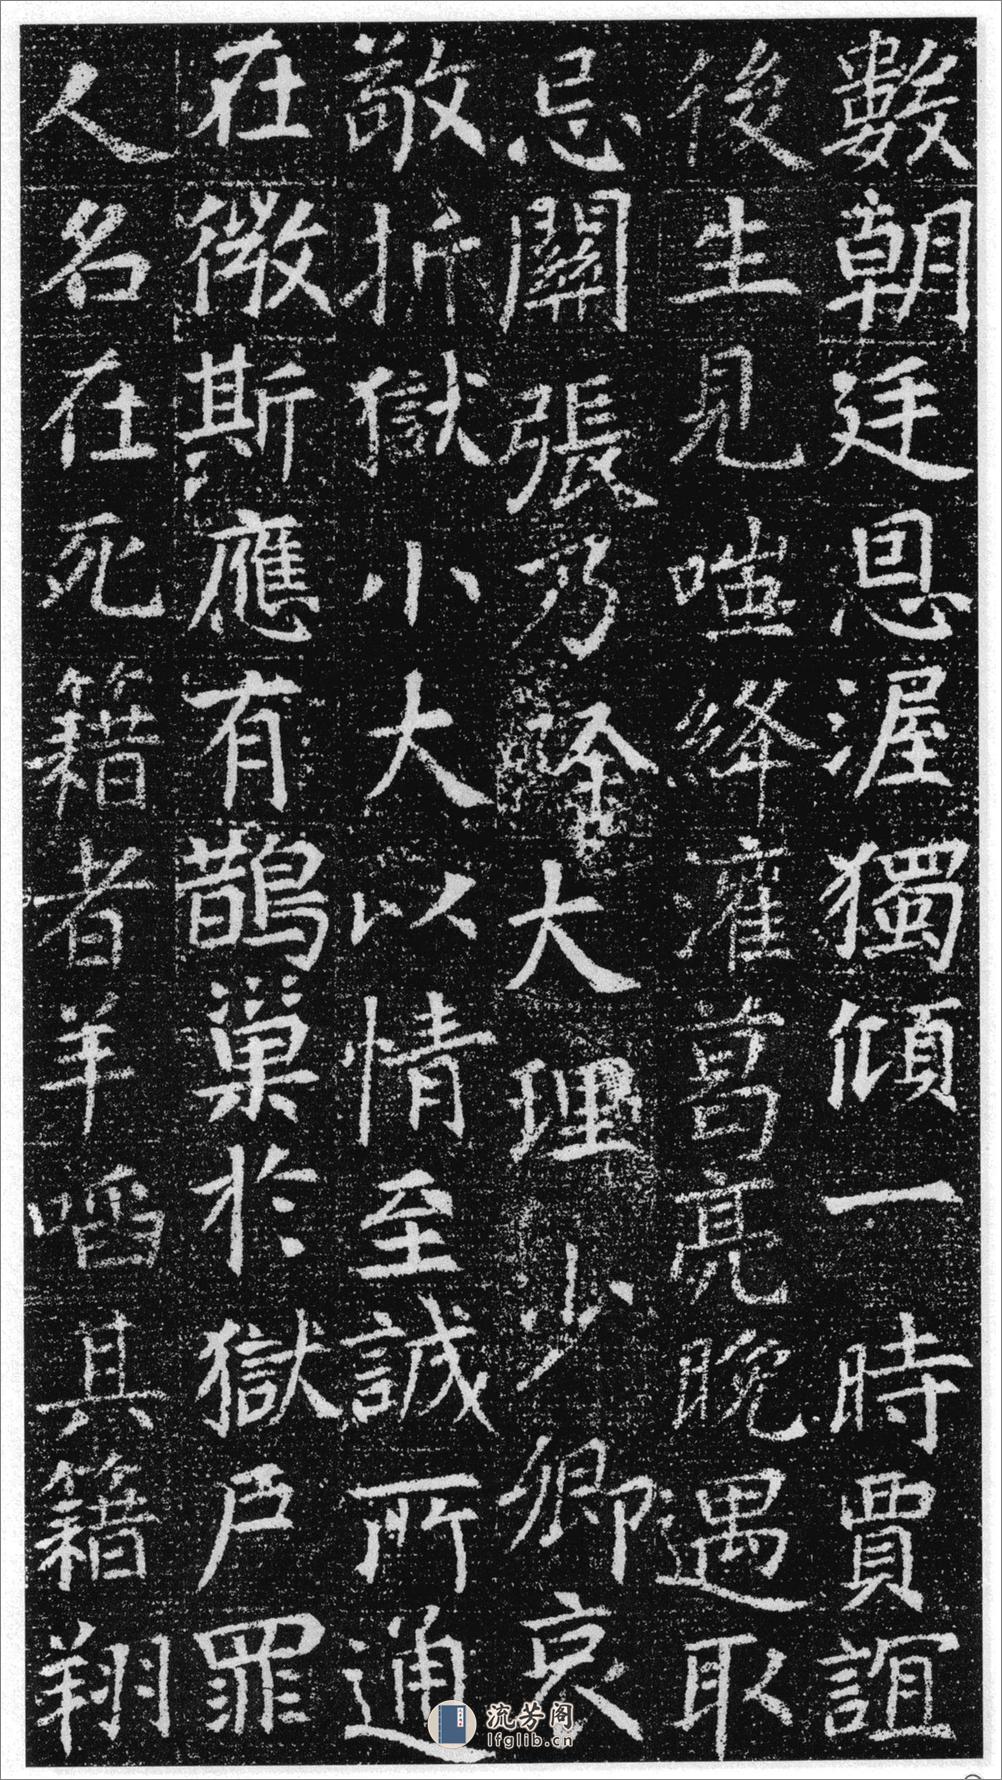 數朝廷恩渥獨傾一時賈誼
後生見嗤絳灌葛亮晚遇取
忌關張乃除大理少卿哀
敬折獄小大以情至誠所通
在微斯應有鵲巢於獄戶罪
人名在死籍者羊啗其籍翔
流芳阁
lfglib.cn